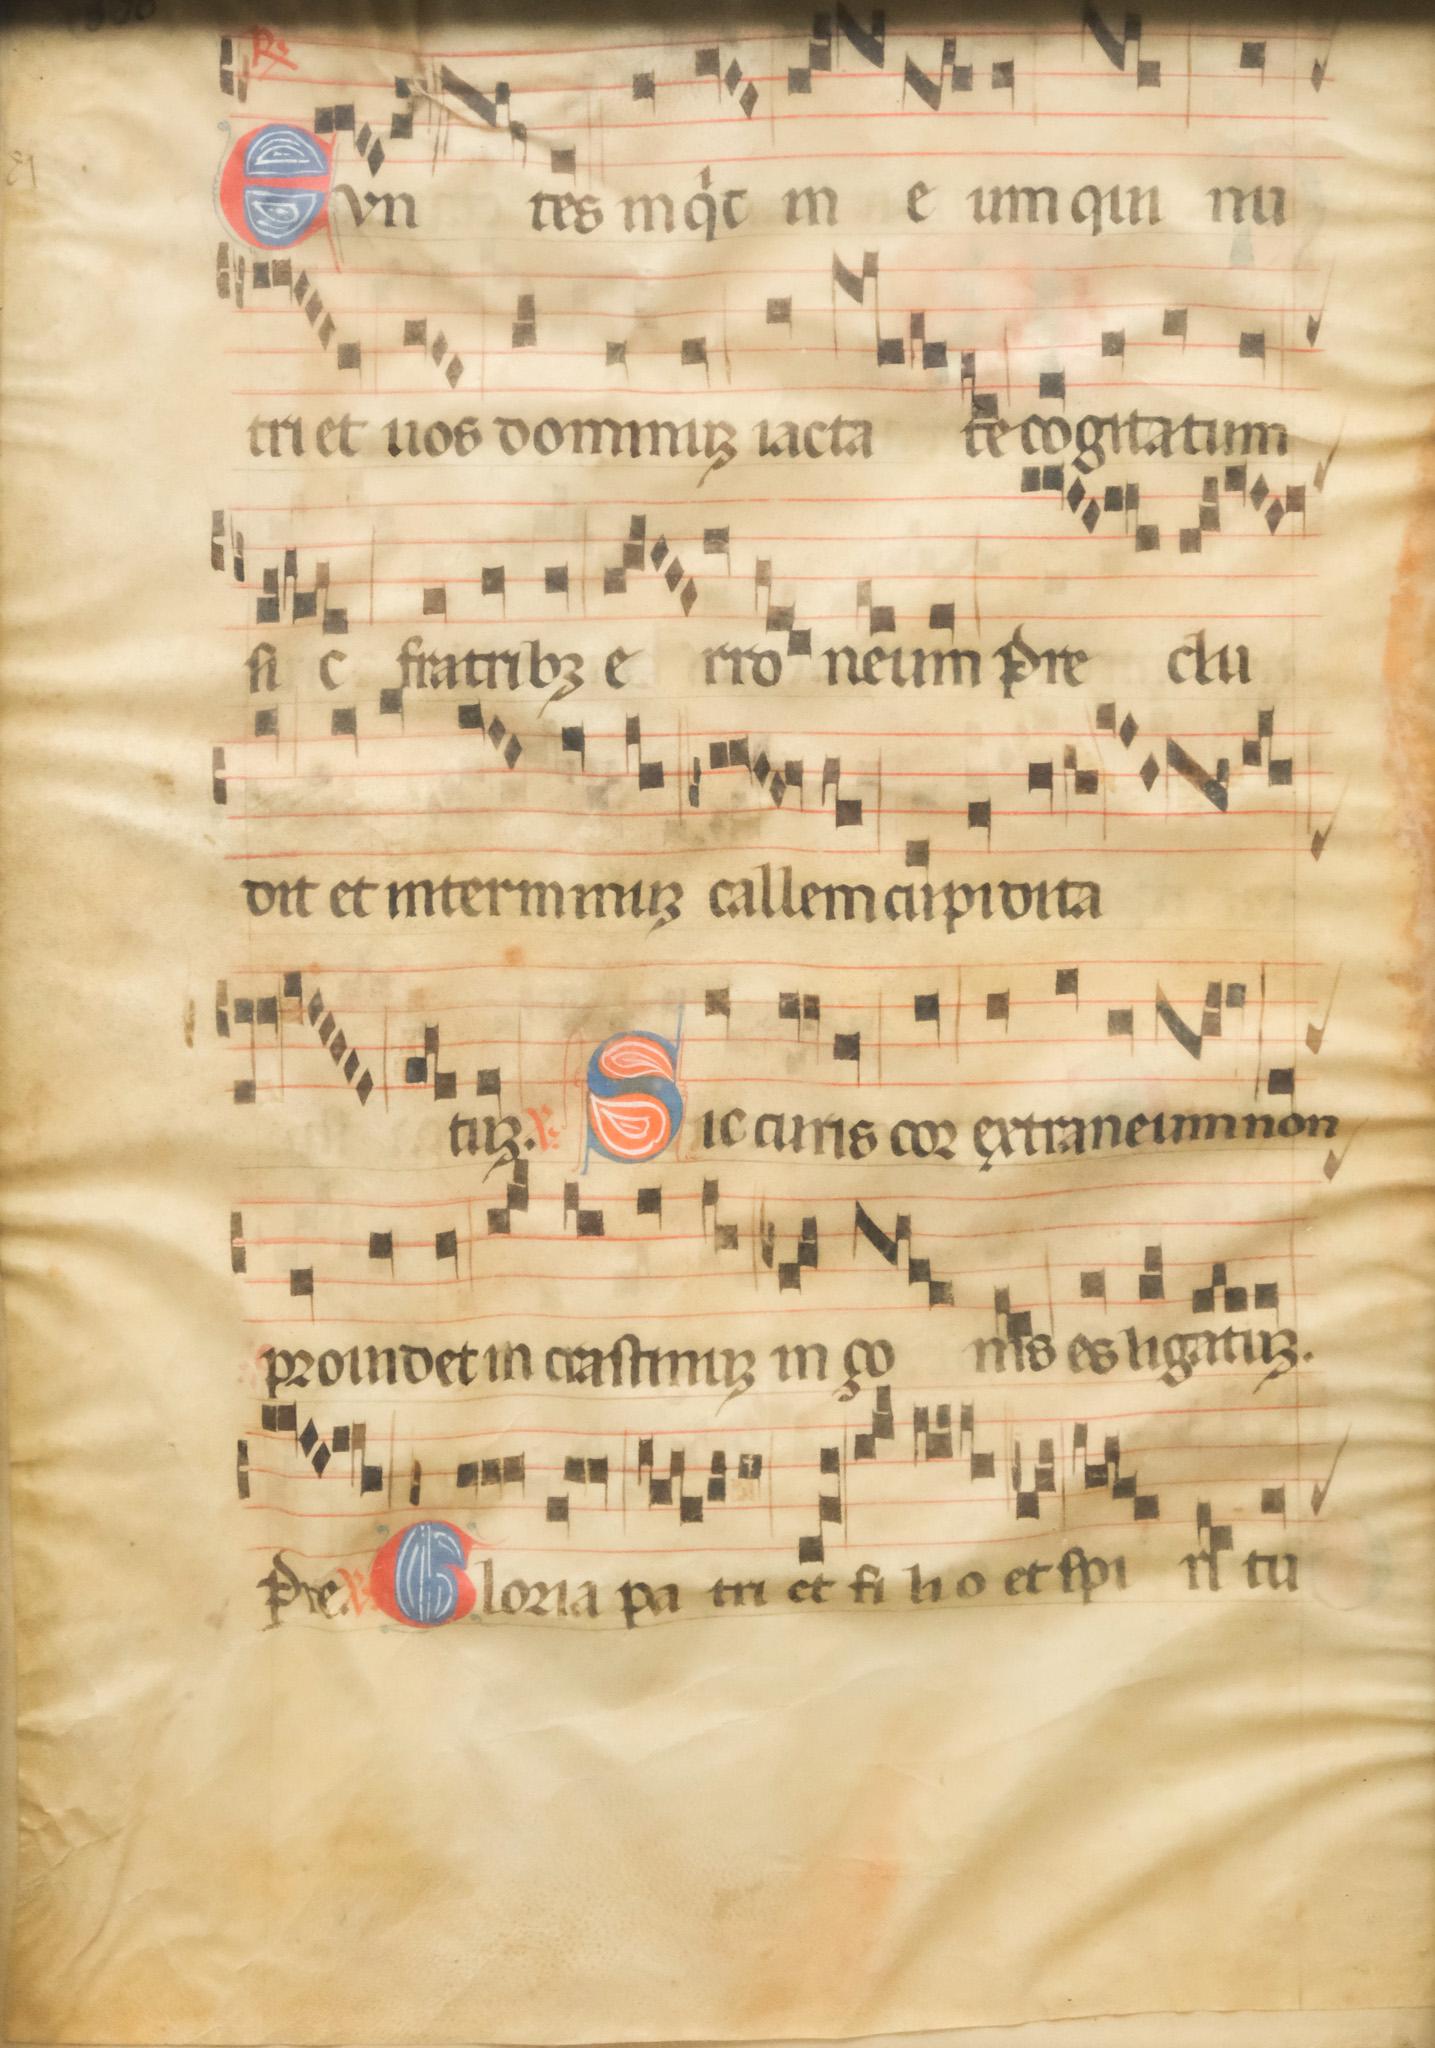 R
Evn tes inqͥt in e um qui nu
tri et uos dominuꝫ iacta te cogitatum
si c fratribꝫ e rro neum p̄re clu
dit et interminuꝫ callem cupidita
tuꝫ. V Sic curis cor extraneum non
prouidet in crastinuꝫ in ço nis es ligatuꝫ.
P̄re V Gloria pa tri et fi li o et spi ri tu